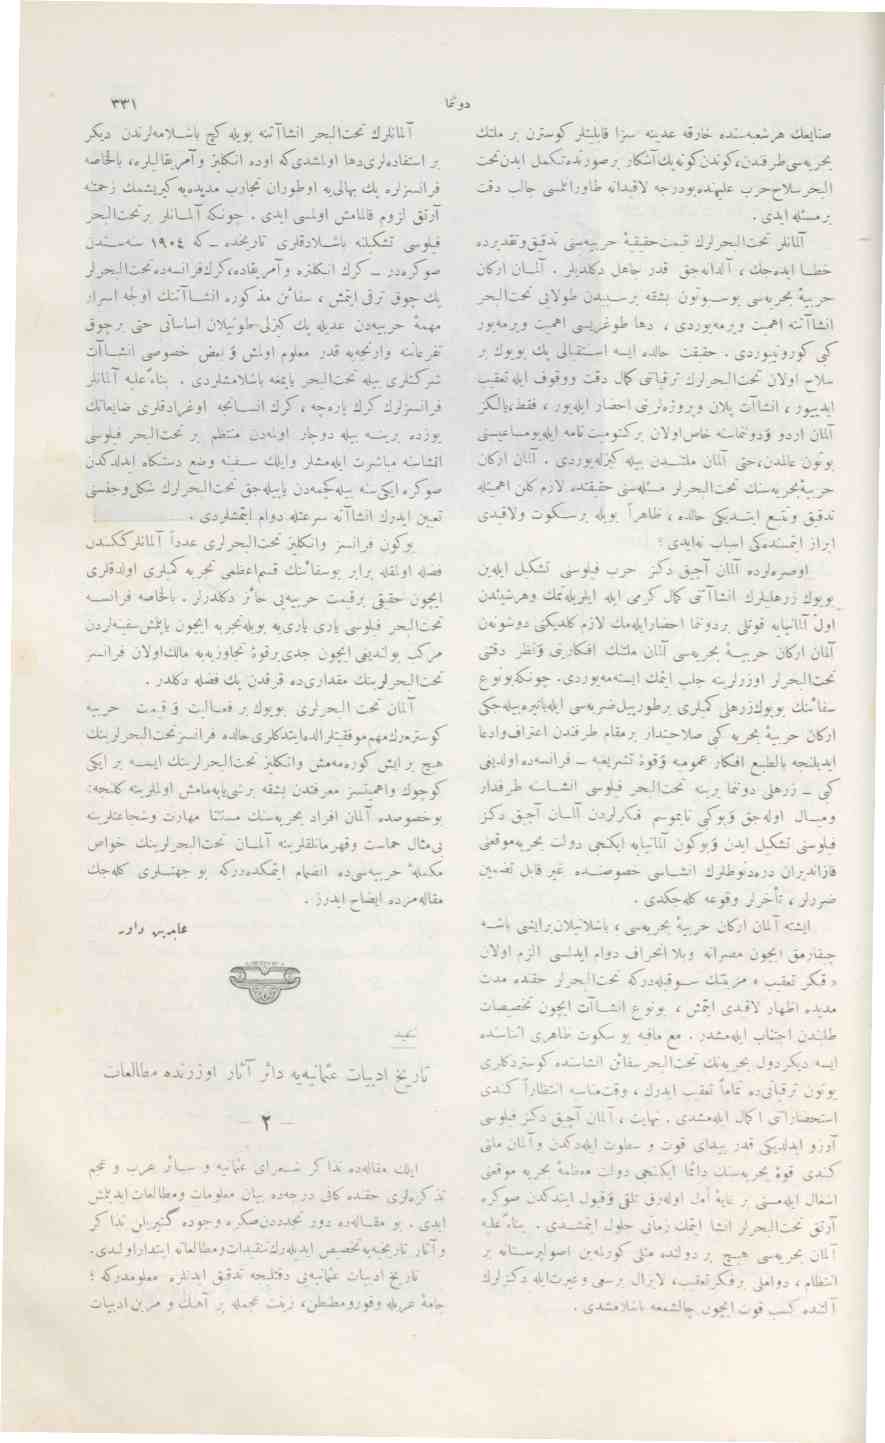 دوننما
٣٣١
صنایعك هرشعبه‌سنده خارقه عدینه سزا قابلیتلر كوسترن بر ملتك
بحریه‌سی طرفندن، كوندن كونه پك آشكار برصورتده تكمل ایدن تحت
البحر سلاح حرب علیهنده بودرجه لاقیدانه طاورانلسی جالب دقت
برمسئله ایدی .
آلمانلر تحت البحرلرك قیمت حقیقیهٔ حربیه‌سنی تدقیق وتقدیرده
خطا ایده‌جك ، آلدانه‌جق قدر جاهل دكلدیلر . آلمان اركان
حربیهٔ بحریه‌سی بوسبوتون بشقه برسببدن طولایی تحت البحر
انشاآتنه اهمیت ویرمه‌یوردی ، دها طوغریسی اهمیت ویرمه‌یور
كبی كورونیوردی . حقیقت حالده ایسه استقبالی پك بویوك بر
سلاح اولان تحت البحرلرك ترقیاتنی كمال دقت ووقوف ایله تعقیب
ایدییور ، انشاآت پلان وپروژه‌لرینی احضار ایله‌یور ، فقط، یالكز
آلمان اردو ودوننماسنه خاص اولان بركتومیت تامه ایله بومساعیسنی
بوتون عالمدن، حتی آلمان ملتندن بیله كیزله‌یوردی . آلمان اركان
حربیهٔ بحریه‌سنك تحت البحرلر مسئله‌سنی حقیقتده لازم كلن اهمیتله
تدقیق وتتبع ایتدیكی حالده ، ظاهراً بویله برسكوت ولاقیدی
ابراز ایتمسنده‌كی اسباب نه‌ایدی ؟
اوصره‌لرده آلمان آچیق دكز حرب فیلوسنی تشكیل ایله‌ین
بویوك زرهلیلرك انشاآتنی كمال كرمی ایله ایلریله‌تمك وهرشیئدن
اول آلمانیایه قوتلی بردوننما احضار ایله‌مك لازم كلدیكنی دوشونه‌ن
آلمان اركان حربیهٔ بحریه‌سی آلمان ملتنك افكارینی ونظر دقتنی
تحت البحرلر اوزرلرینه جلب ایتمك ایسته‌مه‌یوردی. چونكه بونوع
سفائنك بویوك زرهلی كمیلری برطورپیل ضربه‌سی ایله باتیره بیله‌جكی
اركان حربیهٔ بحریه كبی صلاحیتدار برمقام طرفندن اعتراف وادعا
ایدیلنجه بالطبع افكار عمومیه وقوهٔ تشریعیه – فرانسه‌ده اولدیغی
كبی – زرهلی دوننما یرینه تحت البحر فیلوسی انشاسنه طرفدار
ومیال اوله‌جق وبوكبی نابموسم فكرلردن آلمان آچیق دكز
فیلوسنی تشكیل ایدن وبوكون آلمانیایه ایكنجی دولت بحریه موقعنی
قازاندیران دره‌دنوطلرك انشاسی خصوصنده غیر قابل تضمین
ضررلر ، تأخرلر وقوعه كله‌جكدی .
ایشته آلمان اركان حربیهٔ بحریه‌سی ، باشلانیلان برایشی باشه
چیقارمق ایچون مصرانه وبلا انحراف دوام ایدلسی الزم اولان
« فكر تعقیب » مزیتنك سوقیله‌دركه تحت البحرلر حقنده مدت
مدیده اظهار لاقیدی ایتمش ، بونوع انشاآت ایچون تخصیصات
طلبندن اجتناب ایله‌مشدر . مع مافیه بو سكوت ظاهری اثناسنده
ایسه دیكر دول بحریه‌نك تحت البحر سفائن انشاسنده كوستردكلری
بوتون ترقیاتی ده تماماً تعقیب ایدرك ، وقت مناسبه انتظاراً كندی
استحضاراتنی اكمال ایله‌مشدی . نهایت ، آلمان آچیق دكز فیلوسی
آرزو ایدلدیكی قدر پیدای قوت و سطوت ایله‌دكدن وآلمان ملتی
كندی قوهٔ بحریه‌سنك دائما ایكنجی دولت معظمهٔ بحریه موقعنی
اشغال ایله‌مسنی بر غایهٔ أمل اوله‌رق تلقی وقبول ایتدكدن صوكره
آرتق تحت البحرلر انشا ایتمك زمانی حلول ایتمشدی . بناءً علیه
آلمان بحریه‌سی هیچ بر دولتده مثلی كورله‌ین اصولپرستانه بر
انتظام ، دواملی برفكر تعقیب، لایزال برسعی وغیرت ایله دكزلرك
آلتنده كسب قوت ایچون چالیشمغه باشلامشدی .
آلمانلرك تحت البحر انشاآتنه بویله كچ باشلامه‌لرندن دیكر
بر استفاده‌لری دها اولمشدی كه اوده انكلیز وآمریقالیلره، بالخاصه
فرانسزلره پك بهالی‌یه اوطوران تجارب مدیده‌یه كیریشمك زحمتنه
آرتق لزوم قالمامش اولمسی ایدی . چونكه آلمانلر برتحت البحر
فیلوسی تشكیلنه باشلادقلری تاریخده – كه ١٩٠٤ سنه‌سندن
صوكره‌در – كرك انكلتره وآمریقاده، كرك فرانسه‌ده تحت البحرلر
پك چوق ترقی ایتمش ، سفائن مذكوره انشاآتنك اولجه اسرار
مهمهٔ حربیه‌دن عدیله پك كیزلی طوتیلان اساساتی حتی برچوق
تفرعاتنه وارنجه‌یه قدر معلوم اولمش وبعض خصوصی انشاآت
شركتلری بیله تحت البحر یاپمغه باشلامشلردی . بناءً علیه آلمانلر
فرانسزلرك كرك پاره‌جه ، كرك انسانجه اوغرادقلری ضایعاتك
یوزده برینه بیله دوچار اولمه‌دن منتظم بر تحت البحر فیلوسی
انشاسنه مباشرت ایله‌مشلر وایلك سفینه وضع دستكاه ایدلدكدن
صوكره ایكی سنه بیله كچمه‌دن یاپیله‌جق تحت البحرلرك شكل وجنسنی
تعیین ایدرك انشاآته سرعتله دوام ایتمشلردی .
بوكون فرانسز وانكلیز تحت البحرلری عدداً آلمانلركندن
فضله اولمقله برابر بوسفائنك قسم اعظمی تجربه كمیلری اولدقلری
ایچون حقیقی برقیمت حربیه‌یی حائز دكلدرلر . بالخاصه فرانسه
تحت البحر فیلوسی یاری یاری‌یه بویله تجربه ایچون یاپلمش سفینه‌لردن
مركب بولندیغی ایچون جدی برقوهٔ تجاوزیه‌یه مالك اولان فرانسز
تحت البحرلرینك مقداری ده قرقدن پك فضله دكلدر .
آلمان تحت البحرلری بویوك بر فعالیت و قیمت حربیه
كوستره‌رك مهم موفقیتلر الده ایتدكلری حالده فرانسز تحت البحرلرینك
هیچ بر ایش كوره‌مه‌مش وانكلیز تحت البحرلرینك ایسه بر ایكی
كوچوك واهمیتسز معرفتدن بشقه برشی یاپه‌مامش اولملرینه كلنجه:
بوخصوصده آلمان افراد بحریه‌سنك مستثنا مهارت وشجاعتلرینه
بی‌مثال حماست وقهرمانلقلرینه آلمان تحت البحرلرینك خواص
مكملهٔ حربیه‌سی ده انضمام ایتمكده‌دركه بو جهتلری كله‌جك
مقاله‌مزده ایضاح ایدرز .
عابدین داور
تنقید
تاریخ ادبیات عثمانیه‌یه دائر آثار اوزرنده مطالعات
– ٢ –
ایلك مقاله‌ده تذاكر شعرای عثمانیه و سائر عرب و عجم
تذكره‌لری حقنده كافی درجه‌ده بیان معلومات ومطالعات ایدیلمش
ایدی . بو مقاله‌ده دور تجدددن صكره وجوده گتیریلن تذاكر
وآثار تاریخیه‌یه تخصیص ایدیله‌رك تنقیدات ومطالعاته ابتدار اولندی.
تاریخ ادبیات عثمانیه‌یی دقتلیجه تدقیق ایدنلره معلومدركه ؛
جامهٔ عربله وفورومطنطن، زینت عجمله پر آهنك و مزین ادبیات